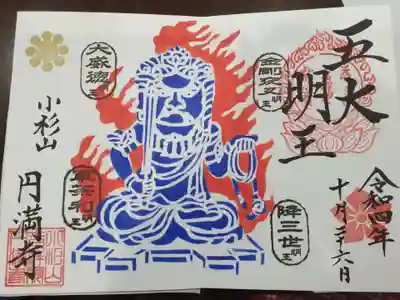 五大
明王
令和四年
十月二十六日
金剛夜叉明王
降三世明王
大威徳明王
軍荼利明王
小杉山
円満寺